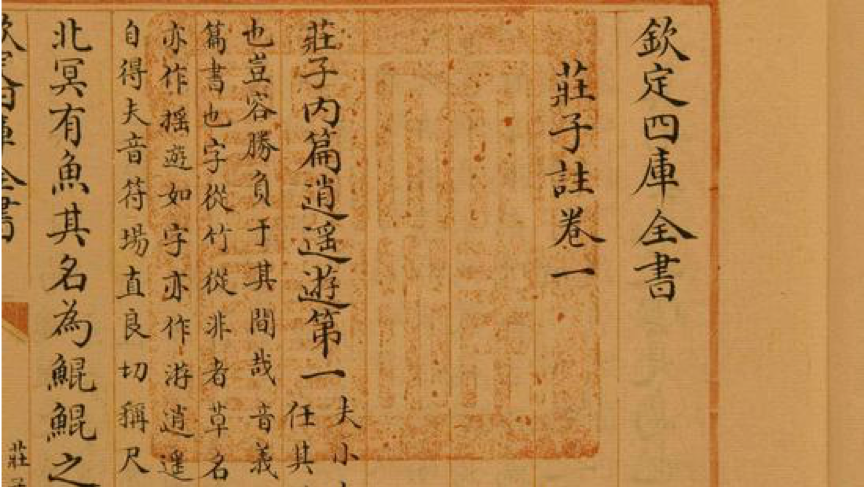 欽定四庫全書
莊子註卷一
莊子内篇逍遥遊第一
夫小
任其
也豈容勝負于其間哉 音義
篇書也字從竹從非者草名
亦作揺遊如字亦作游逍遥
自得夫音符場直良切稱尺
北冥有魚其名為鯤鯤之
庫全書
莊